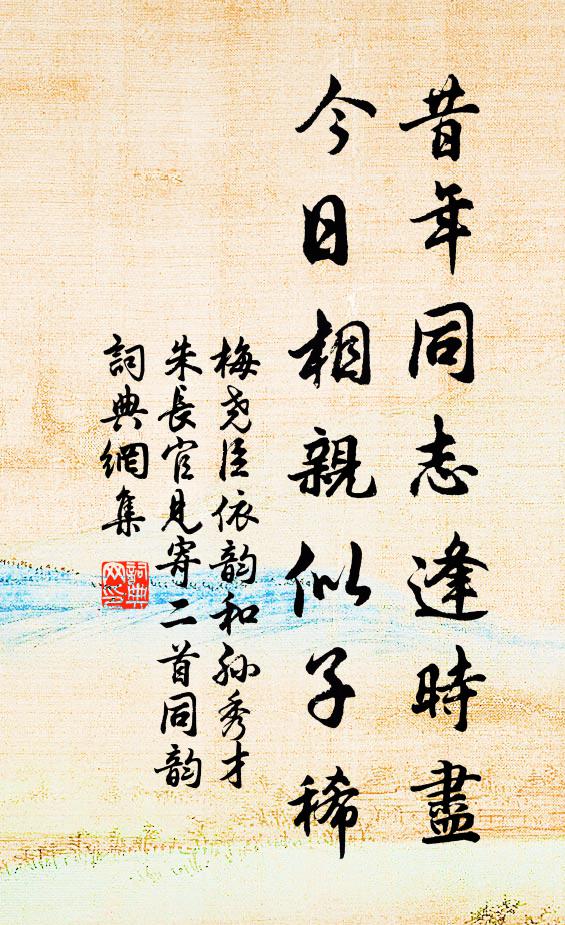 昔年同志逢時盡
今日相親似子稀
梅堯臣依韵和孙秀才
朱長官見寄二首同韵
詞典網集
詞典网印